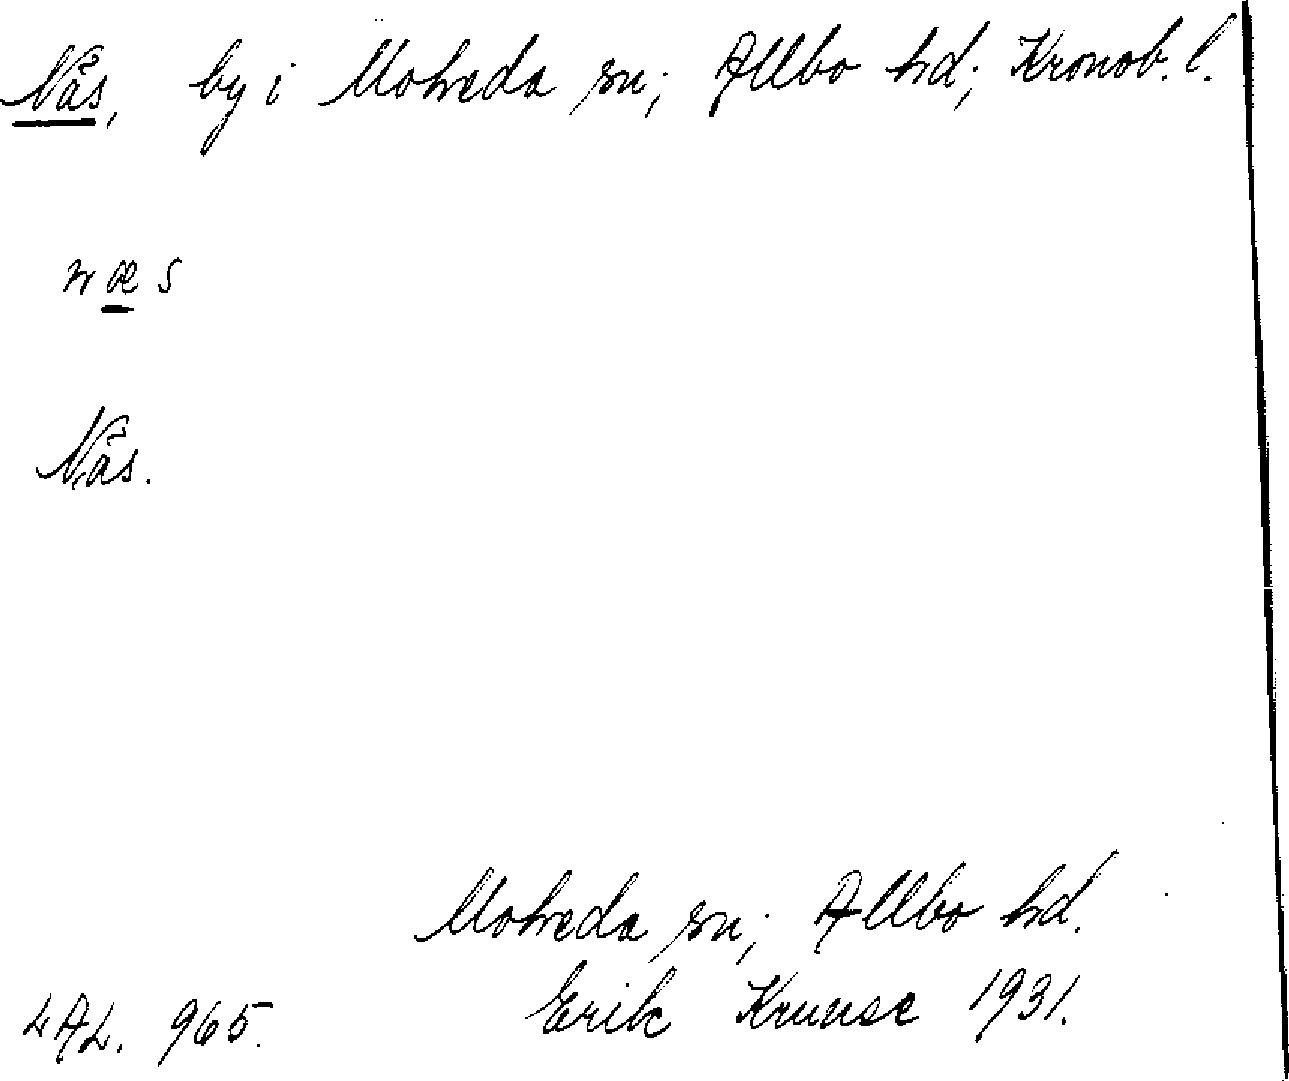 Näs, by i Moheda sn; Allbo hd; Kronob. l.
næs
Näs.
Moheda sn; Allbo hd.
LAL. 965. Erik Kruuse 1931.